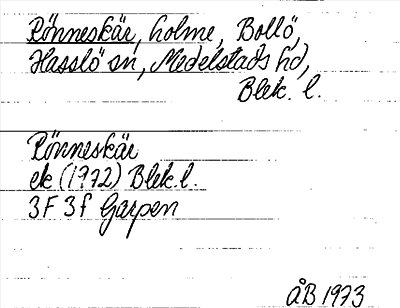 Rönneskär, holme, Bollö,
Hasslö sn, Medelstads hd,
Blek. l.
Rönneskär
ek (1972) Blek. l.
3F 3f Garpen
ÅB 1973